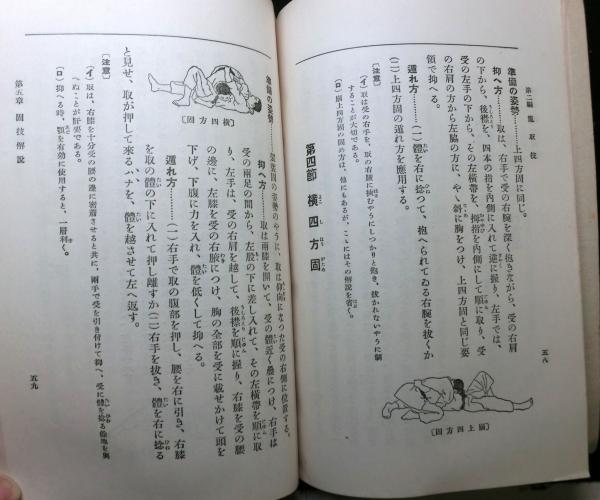 第二編 亂取技
準備の姿勢……上四方固に同じ。
抑へ方……取は、右手で受の右腕を深く抱きながら、受の右肩
の下から、後襟を、四本の指を内側に入れて逆に握り、左手では、
受の左手の下から、その左横帶を、拇指を内側にして順に取り、受
の右肩の方から左脇の方に、やゝ斜に胸をつけ、上四方固と同じ要
領で抑へる。
遁れ方……(一)體を右に捻つて、抱へられてゐる右腕を拔くか
(二)上四方固の遁れ方を應用する。
〔注意〕
(イ) 取は受の右手を、取の右腋に挾むやうにしつかりと抱き、拔かれないやうに制
することが大切である。
(ロ) 崩上四方固の固の方は、他にもあるが、こゝにはその解説を省く。
第四節 橫四方固
〔崩上四方固〕
五八
準備の姿勢……袈裟固の姿勢のやうに、取は仰向になつた受の右側に位置する。
抑へ方……取は兩膝を開いて、受の體近く疊につけ、右手は
受の兩足の間から、左股の下に差し入れて、その左橫帶を順に取
り、左手は、受の右肩を越して、後襟を順に握り、右膝を受の腰
の邊に、左膝を受の右腋につけ、胸の全部を受に載せかけて頭を
下げ、下腹に力を入れ、體を低くして抑へる。
遁れ方……(一)右手で取の腹部を押し、腰を右に引き、右膝
を取の體の下に入れて押し離すか(二)右手を拔き、體を右に捻る
と見せ、取が押して來るハナを、體を越させて左へ返す。
〔橫四方固〕
〔注意〕
(イ) 取は、右膝を十分受の腰の邊に密着させると共に、兩手で受を引き付けて抑へ、受に體を捻る餘地を與
へぬことが肝要である。
(ロ) 抑へる時、顎を有効に使用すると、一層利く。
第五章 固技解説
五九